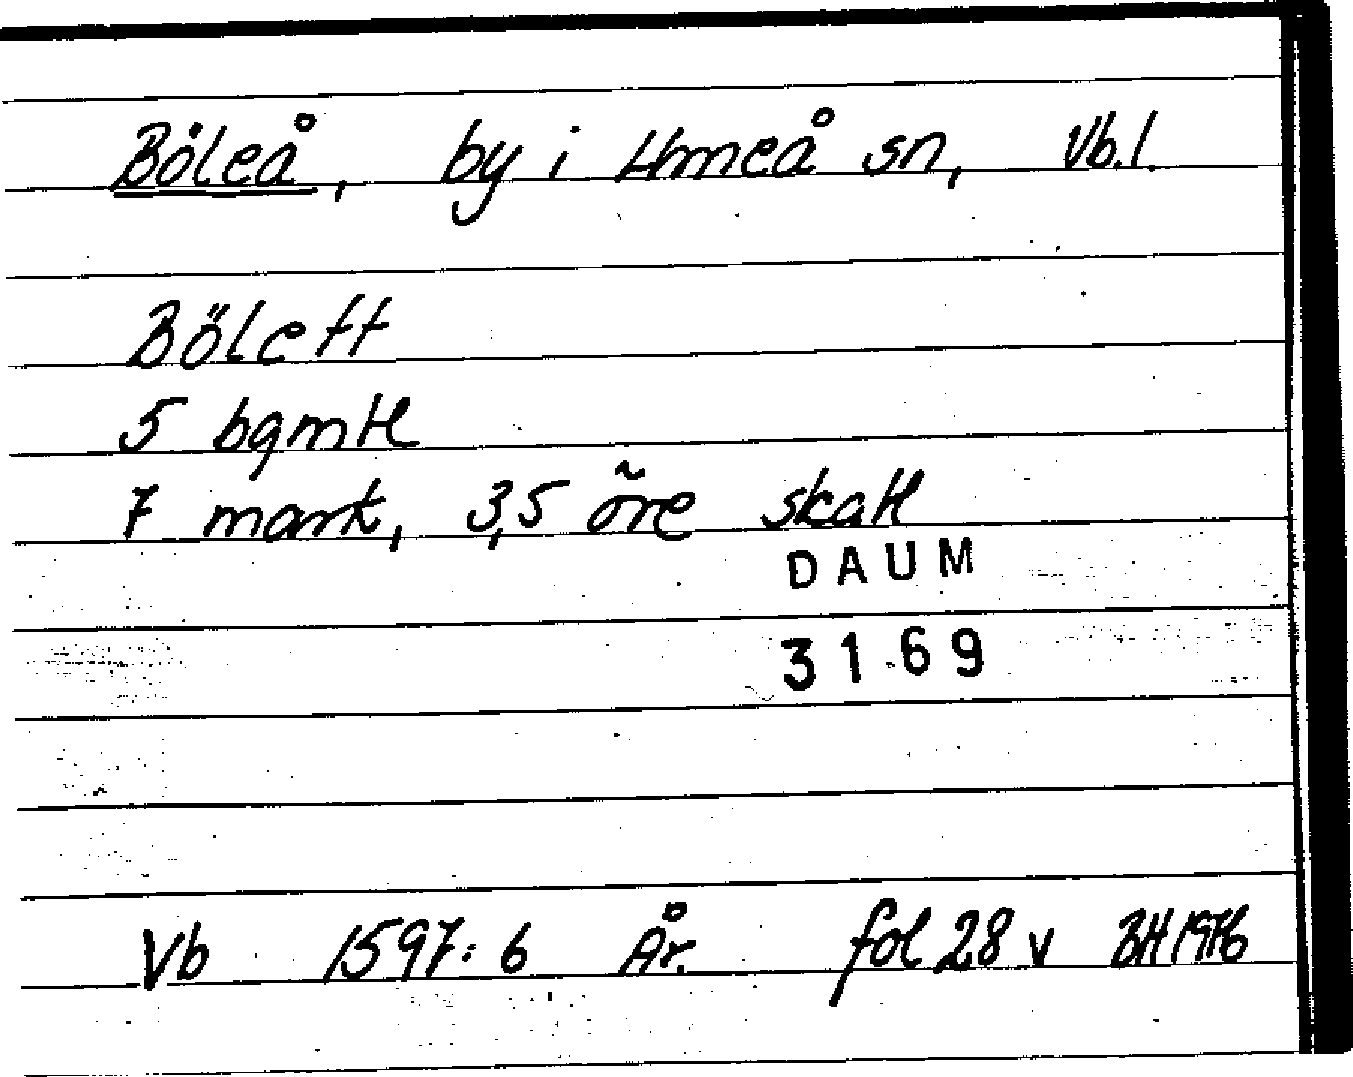 Böleå, by i Umeå sn, Vb.l.
Bölett
5 bqmtl
7 mark, 3,5 öre skatt
DAUM
3169
Vb 1597:6 År. fol 28 v BH 1976